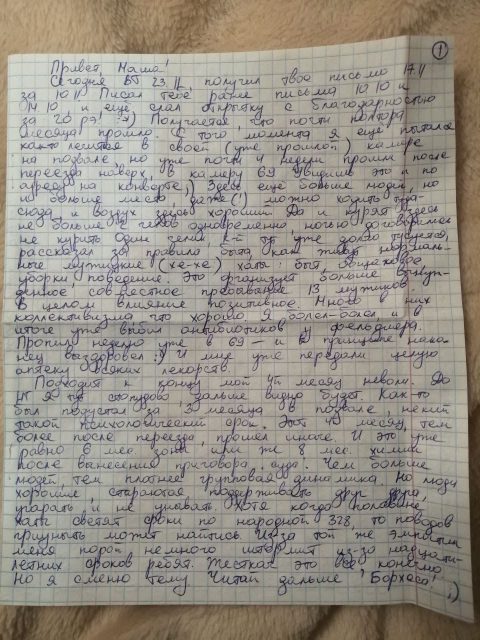 ①
Привет, Маша!
Сегодня ВТ 23.11, получил твое письмо 17.11
за 10.11 Писал тебе ранее письма 10.10 и
14.10, и еще слал открытку с благодарностью
за 20 рэ! :) Получается что почти полтора
месяца прошло. С того момента я еще пытался
как-то в своей (уже прошлой) камере
на подвале но уже почти 4 недели прошли после
переезда наверх, в камеру 69 Увидишь это и по
адресу на конверте :) Здесь еще больше людей, но
и больше места, даже (!) можно ходить туда-
сюда, и воздух здесь хороший. Да и курят здесь
не больше 2 челов одновременно, ночью договорились
не курить. Один челик к-й тут уже долго тусуется,
рассказал за правила быта как живут нормаль-
ные мужицкие (хе-хе) хаты: быт,
уборки поведение. Это организует больше
совместное пребывание 13 мужиков.
В целом влияние позитивное. Много в них
коллективизма что хорошо. Я болел-болел, и в
итоге уже выбил антибиотиков у фельдшера.
Пропил неделю уже в 69 — и в принципе нако-
нец выздоровел :) И мне уже передали целую
аптеку всяких лекарств.
Подходит к концу мой 4й месяц неволи. До
НГ я тут стопудово, дальше видно будет. Как-то
был подустал за 3 месяца в подвале, некий
такой психологический срок. Этот 4й месяц, тем
более после переезда, прошел иначе. И это уже
равно 6 мес. зоны или же 8 мес. химии
после вынесения приговора суда. Чем больше
людей, тем плотнее групповая динамика. Но люди
хорошие стараются поддерживать друг друга,
и не унывать. Хотя когда половине
хаты светят сроки по народной 328, то поводов
приуныть может найтись. Из-за той же эмпатии
меня порой немного из-за надцати-
летних сроков ребят. Жесткач это все конечно
Но я сменю тему. Читай дальше Борхеса! :)